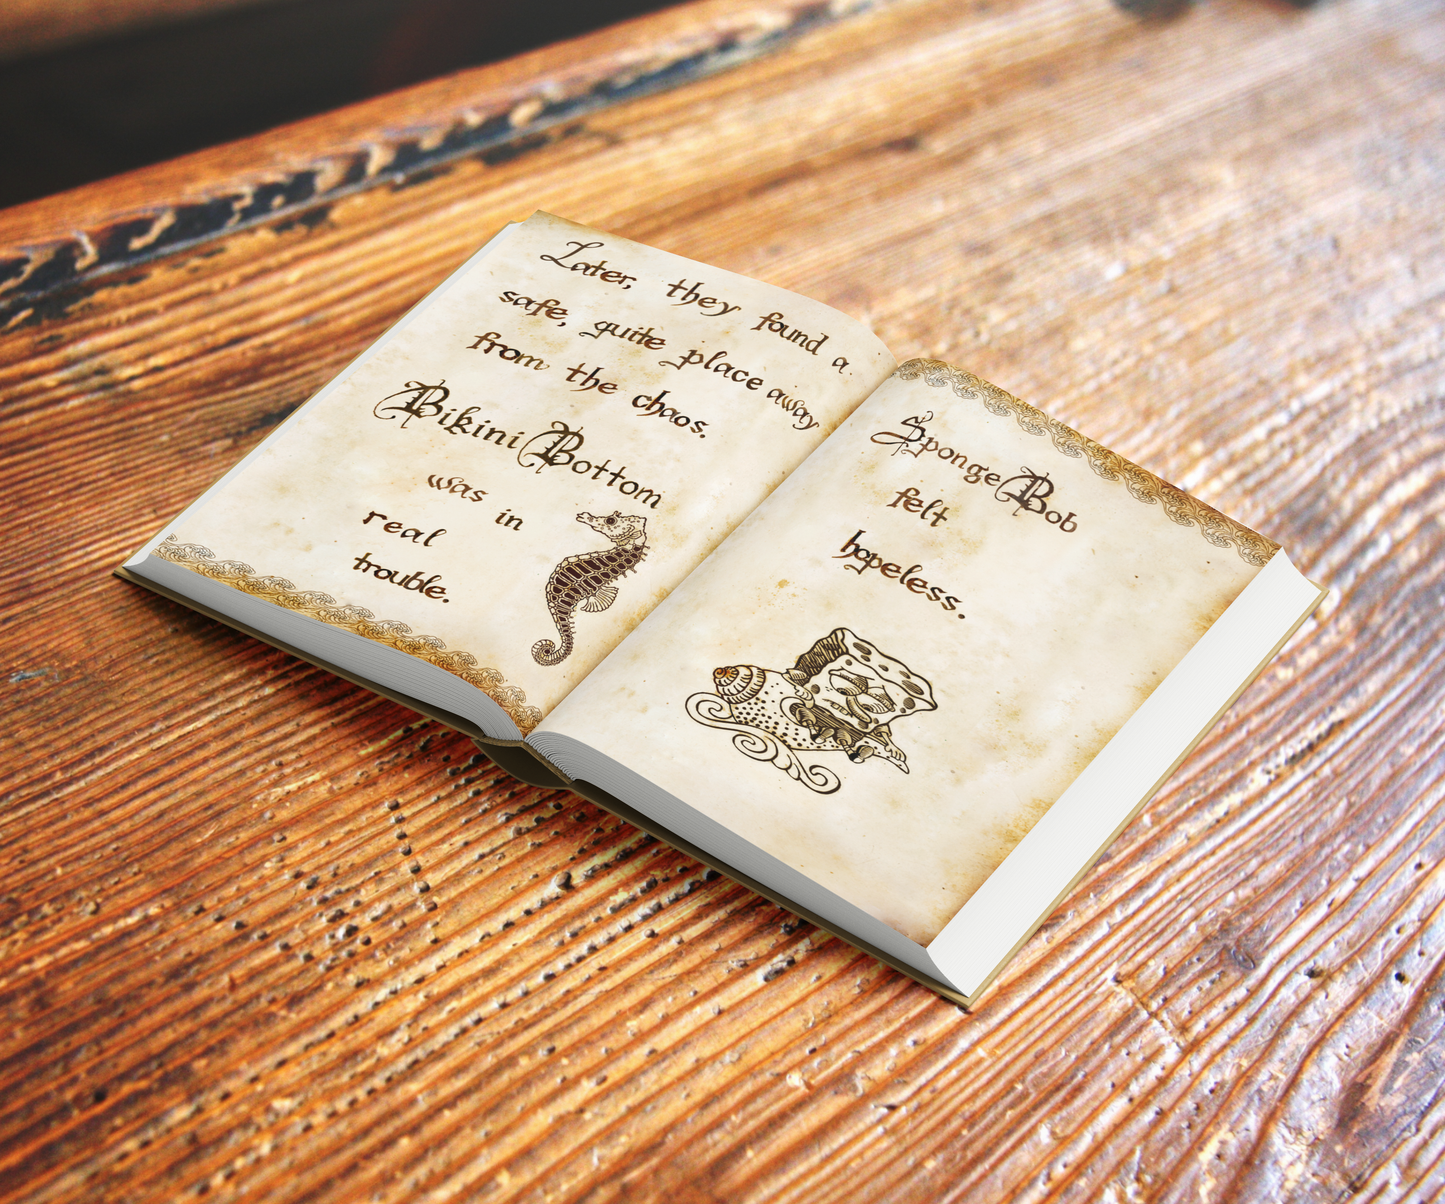 Later, they found a
safe, quite place away
from the chaos.
Bikini Bottom
was in
real
trouble.
SpongeBob
felt
hopeless.